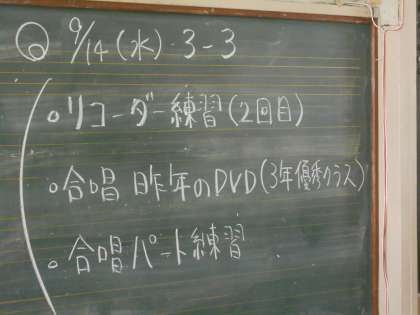 9/14(水) 3-3
・リコーダー練習(2回目)
・合唱 昨年のDVD(3年優秀クラス)
・合唱パート練習